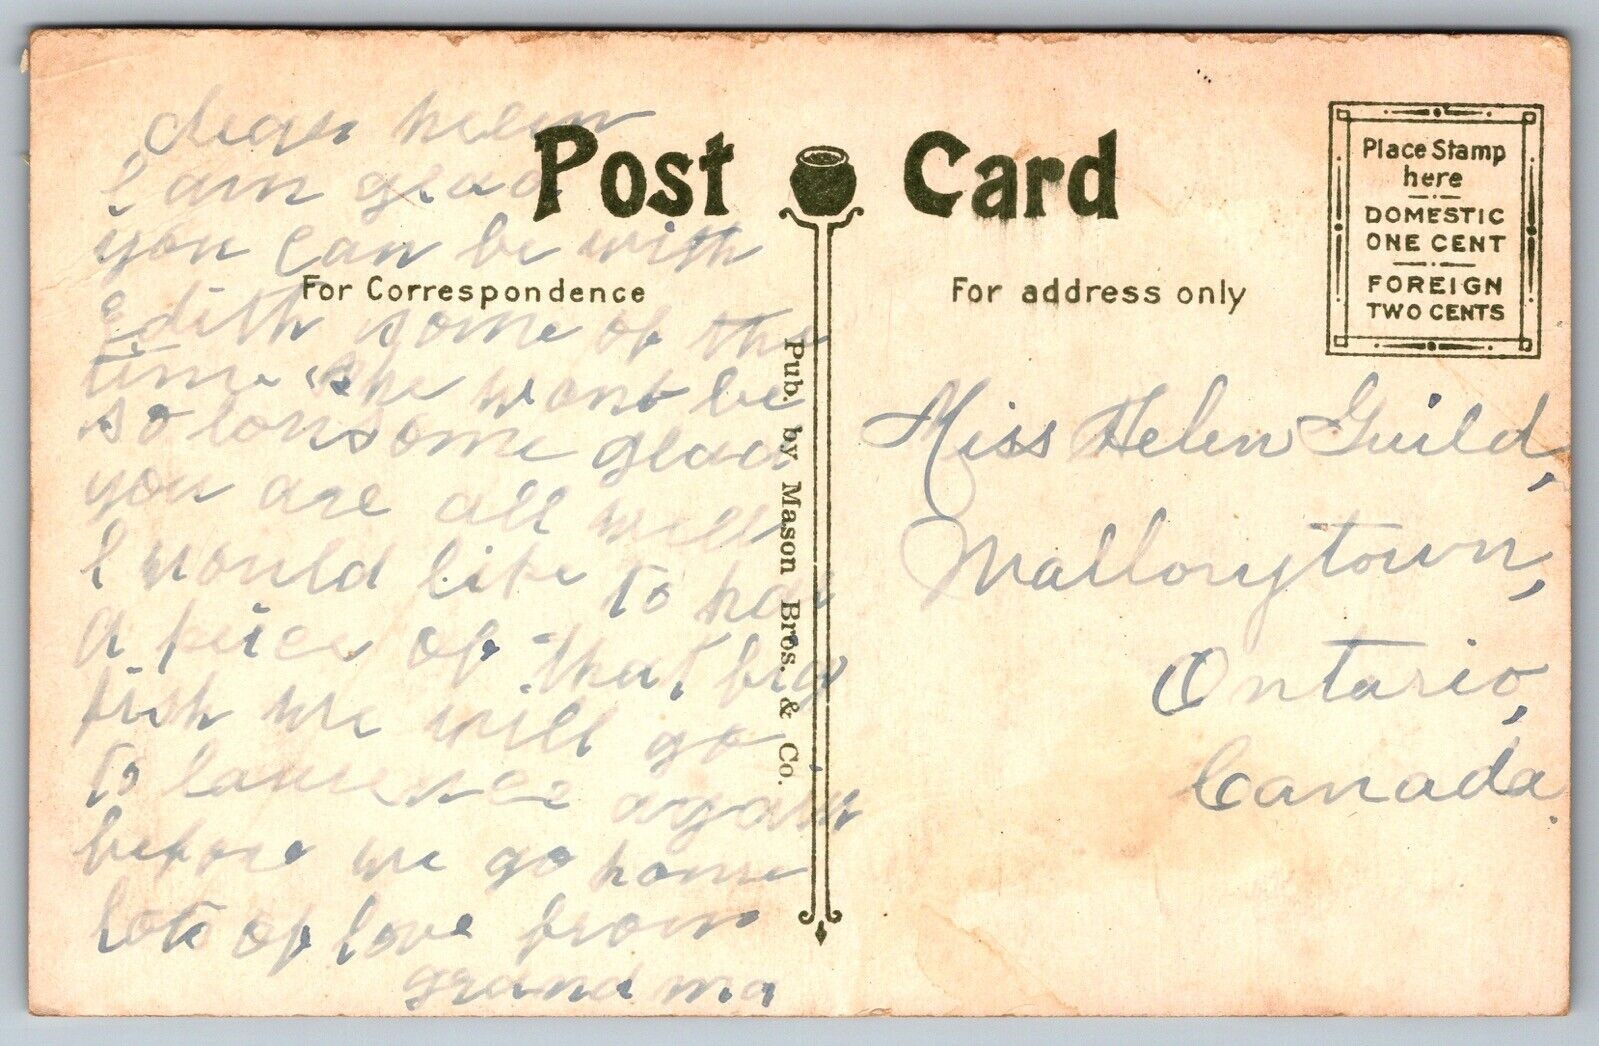 Post Card
For Correspondence
For address only
Place Stamp
here
DOMESTIC
ONE CENT
FOREIGN
TWO CENTS
Pub. by Mason Bros. & Co.
dear helen
I am glad
you can be with
Edith some of the
time she wont be
so lonsome glad
you are all well
I would like to hav
a peice of that big
fish we will go
to lawrence again
before we go home
lots of love from
grand ma
Miss Helen Guild,
Mallorytown,
Ontario,
Canada.